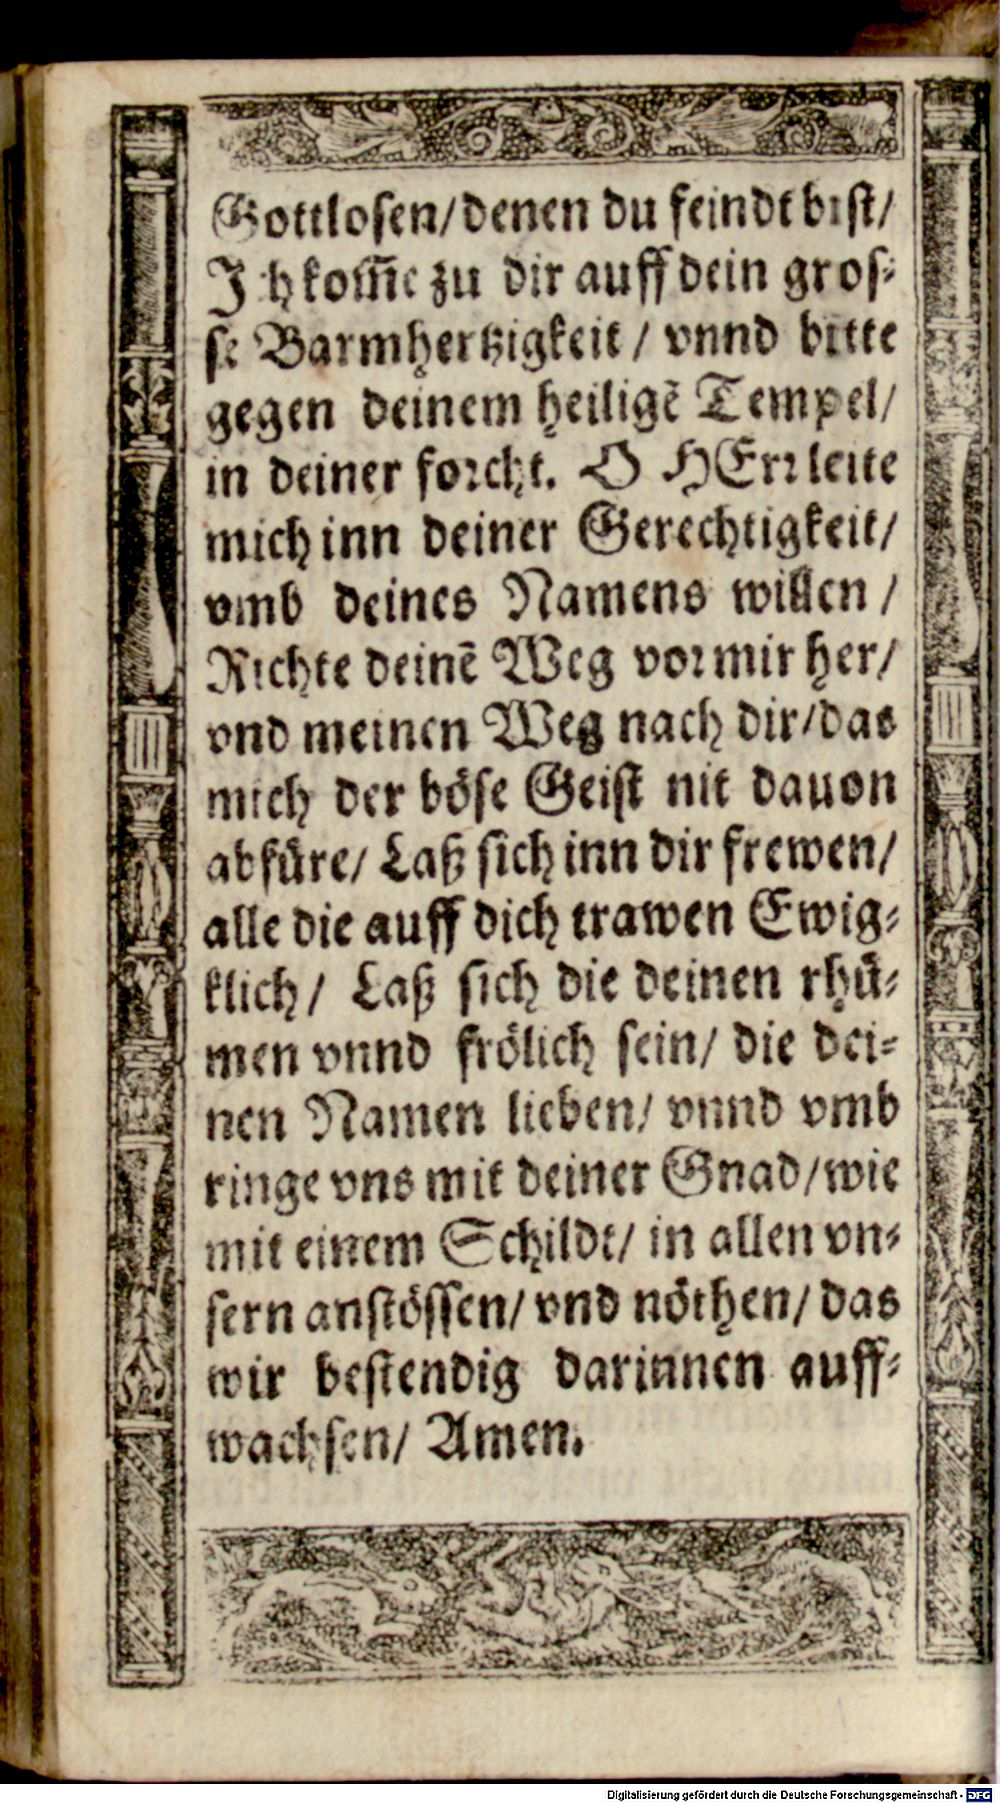 Gottlosen/denen du feindt bist/
Ich kom̃e zu dir auff dein gros⸗
se Barmhertzigkeit / vnnd bitte
gegen deinem heiligẽ Tempel/
in deiner forcht. O HErr leite
mich inn deiner Gerechtigkeit/
vmb deines Namens willen /
Richte deinẽ Weg vor mir her/
vnd meinen Weg nach dir/das
mich der böse Geist nit dauon
abfüre/ Laß sich inn dir frewen/
alle die auff dich trawen Ewig⸗
klich/ Laß sich die deinen rhü⸗
men vnnd frölich sein/ die dei⸗
nen Namen lieben/ vnnd vmb
ringe vns mit deiner Gnad/wie
mit einem Schildt/ in allen vn⸗
sern anstössen/ vnd nöthen/ das
wir bestendig darinnen auff⸗
wachsen/ Amen.
Digitalisierung gefördert durch die Deutsche Forschungsgemeinschaft - DFG